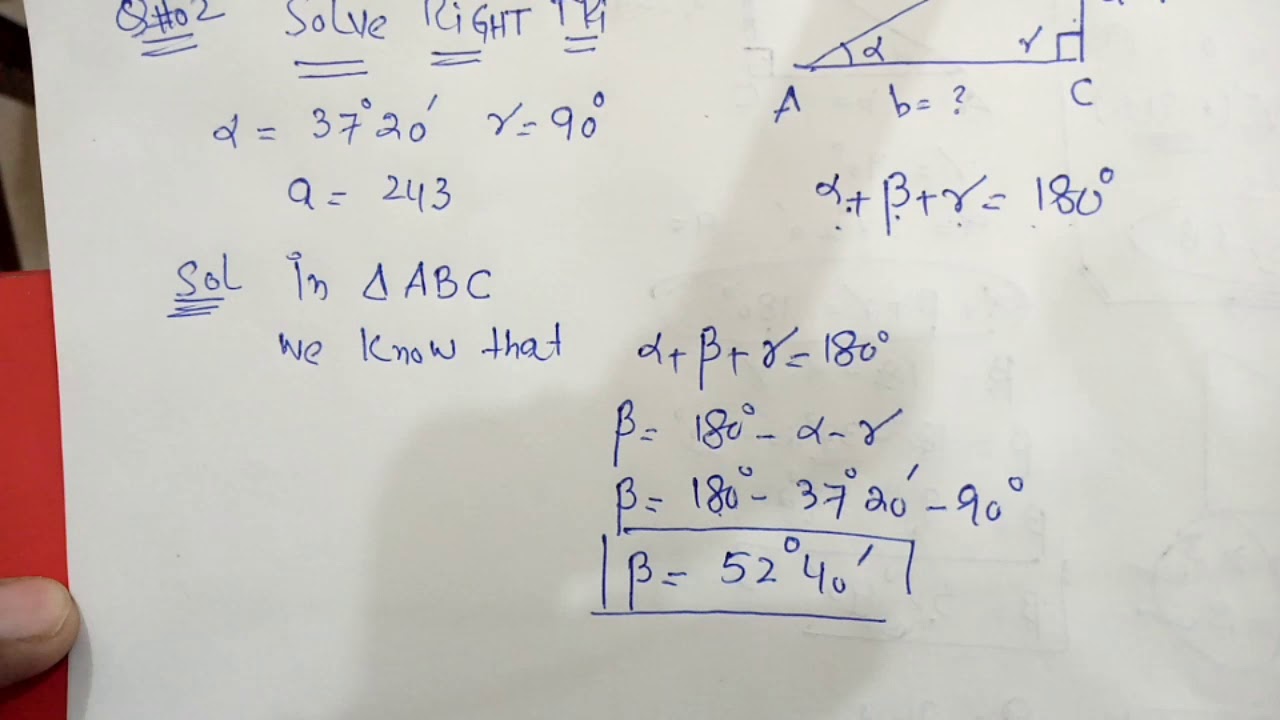 Q#02 Solve Right Tri
α = 37°20′ γ = 90°
a = 243
α
γ
A b = ? C
α + β + γ = 180°
Sol In Δ ABC
we know that α + β + γ = 180°
β = 180° - α - γ
β = 180° - 37°20′ - 90°
β = 52°40′